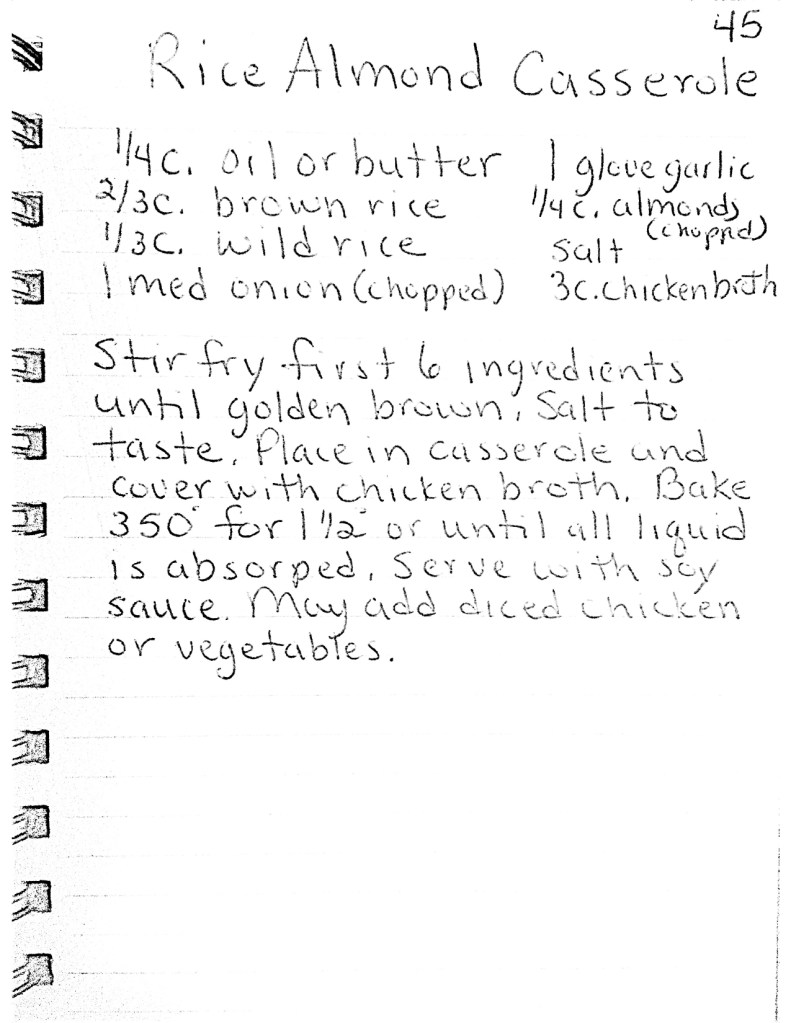 45
Rice Almond Casserole
1/4 c. oil or butter
2/3 c. brown rice
1/3 c. wild rice
1 med onion (chopped)
1 glove garlic
1/4 c. almonds
(choppd)
salt
3c. chicken broth
Stir fry first 6 ingredients
until golden brown. Salt to
taste. Place in casserole and
cover with chicken broth. Bake
350° for 1 1/2° or until all liquid
is absorped. Serve with soy
sauce. May add diced chicken
or vegetables.